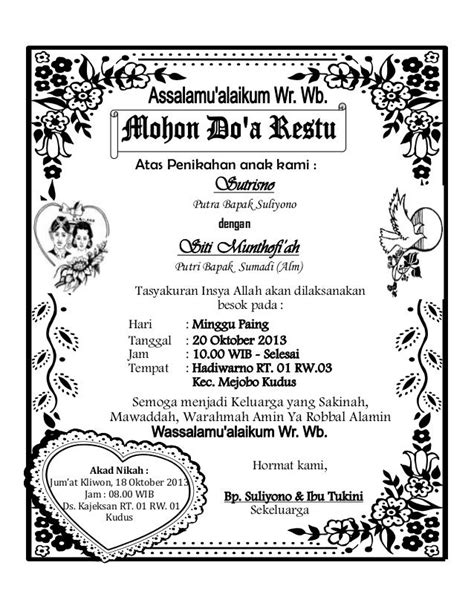 Assalamu'alaikum Wr. Wb.
Mohon Do'a Restu
Atas Penikahan anak kami :
Sutrisno
Putra Bapak Suliyono
dengan
Siti Munthofi'ah
Putri Bapak Sumadi (Alm)
Tasyakuran Insya Allah akan dilaksanakan
besok pada :
Hari : Minggu Paing
Tanggal : 20 Oktober 2013
Jam : 10.00 WIB - Selesai
Tempat : Hadiwarno RT. 01 RW.03
Kec. Mejobo Kudus
Semoga menjadi Keluarga yang Sakinah,
Mawaddah, Warahmah Amin Ya Robbal Alamin
Wassalamu'alaikum Wr. Wb.
Akad Nikah :
Jum'at Kliwon, 18 Oktober 2013
Jam : 08.00 WIB
Ds. Kajeksan RT. 01 RW. 01
Kudus
Hormat kami,
Bp. Suliyono & Ibu Tukini
Sekeluarga